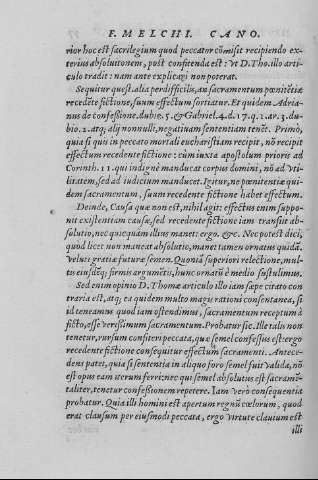 F. MELCHI. CANO.
rior hoc est sacrilegium quod peccator cõmisit recipiendo ex-
terius absolutionem, post confitenda est: vt D. Tho. illo arti
culo tradit: nam ante explicagi non poterat.
Sequitur quęst. alia perdifficilis, an sacramentum pœnitẽtiæ
recedẽte fictione, suum effectum sortiatur. Et quidem Adria-
nus de confessione. dubio. 5. & Gabriel. 4. d. 17. q. 1. ar. 3. du-
bio. 2. atq; alij nonnulli, negatiuam sententiam tenẽt. Primò,
quia si quis in peccato mortali eucharistiam recipit, nõ recipit
effectum recedente fictione: cùm iuxta apostolum prioris ad
Corinth. 11. qui indignè manducat corpus domini, nõ ad vti-
litatem, sed ad iudicium manducet. Igitur, ne pœnitentiæ qui-
dem sacramentum, suum recedente fictione habet effectum.
Deinde, Causa quæ non est, nihil agit: effectus enim suppo-
nit existentiam causæ, sed recedente fictione iam transijt ab-
solutio, nec quicquàm illius manet: ergo. &c. Nec potest dici,
quod licet non maneat absolutio, manet tamen ornatus quidã.
Veluti gratiæ futuræ semen. Quoniã superiori relectione, mul-
tis eiusdẽq; firmis argumẽtis, hunc ornatũ è medio sustulimus.
Sed enim opinio D. Thomæ articulo illo iam sæpe citato con
traria est, atq; ea quidem multo magis rationi consentanea, si
id teneamus quod iam ostendimus, sacramentum receptum à
ficto, esse verissimum sacramentum. Probatur sic. Ille talis non
tenetur, rursum confiteri peccata, quæ semel confessus est: ergo
recedente fictione consequitur effectum sacramenti. Antece-
dens patet, quia si sententia in aliquo foro semel fuit valida, nõ
est opus eam iterum ferri: nec qui semel absolutus est sacramẽ-
taliter, tenetur confessionem repetere. Iam verò consequentia
probatur. Quia illi homini est apertum regnũ cœlorum, quod
erat clausum per eiusmodi peccata, ergo virtute clauium est
illi